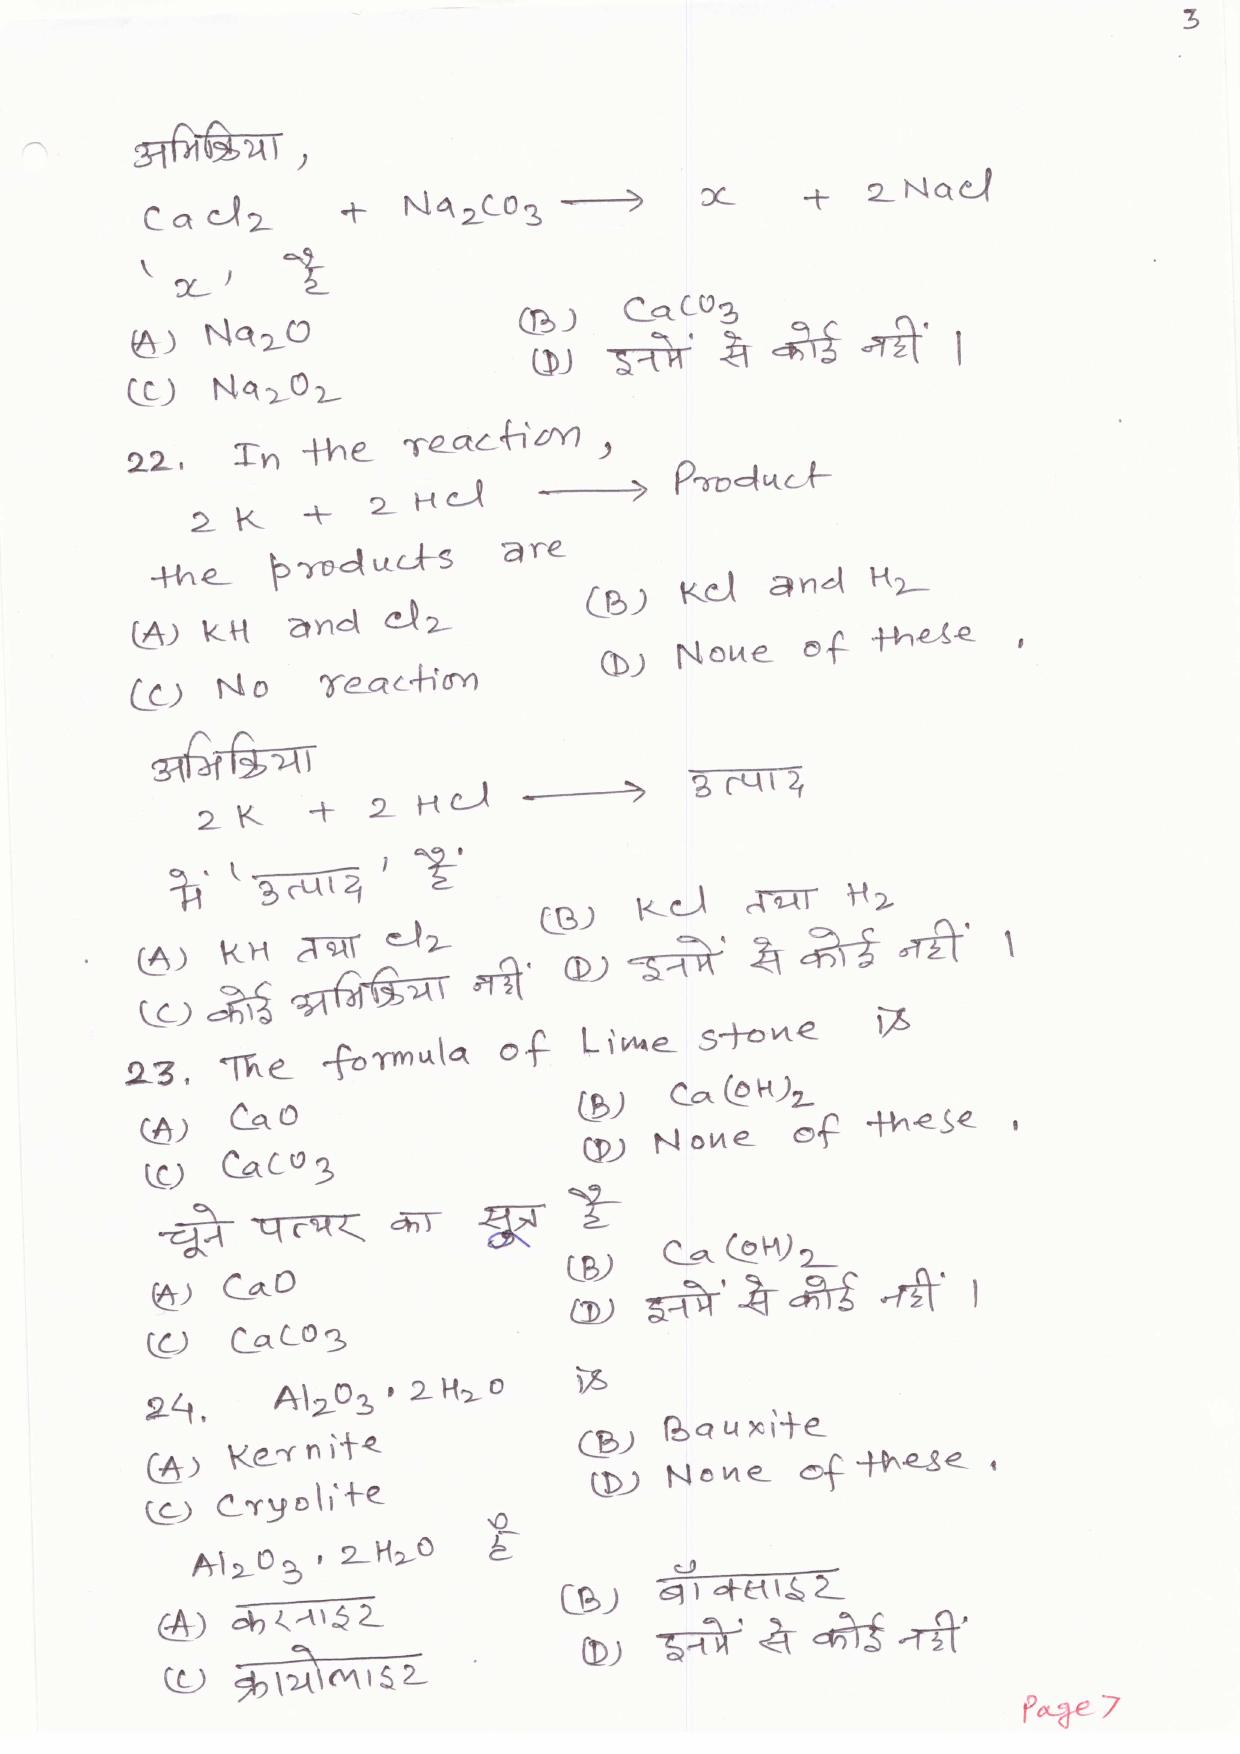 3
अभिक्रिया,
CaCl2 + Na2CO3 ⟶ x + 2NaCl
'x' है
(A) Na2O (B) CaCO3
(C) Na2O2 (D) इनमें से कोई नहीं ।
22. In the reaction,
2K + 2HCl ⟶ Product
the products are
(A) KH and Cl2 (B) KCl and H2
(C) No reaction (D) None of these.
अभिक्रिया
2K + 2HCl ⟶ उत्पाद
में 'उत्पाद' हैं
(A) KH तथा Cl2 (B) KCl तथा H2
(C) कोई अभिक्रिया नहीं (D) इनमें से कोई नहीं ।
23. The formula of Lime stone is
(A) CaO (B) Ca(OH)2
(C) CaCO3 (D) None of these.
चूने पत्थर का सूत्र है
(A) CaO (B) Ca(OH)2
(C) CaCO3 (D) इनमें से कोई नहीं ।
24. Al2O3·2H2O is
(A) Kernite (B) Bauxite
(C) Cryolite (D) None of these.
Al2O3·2H2O है
(A) करनाइट (B) बॉक्साइट
(C) क्रायोलाइट (D) इनमें से कोई नहीं
Page 7